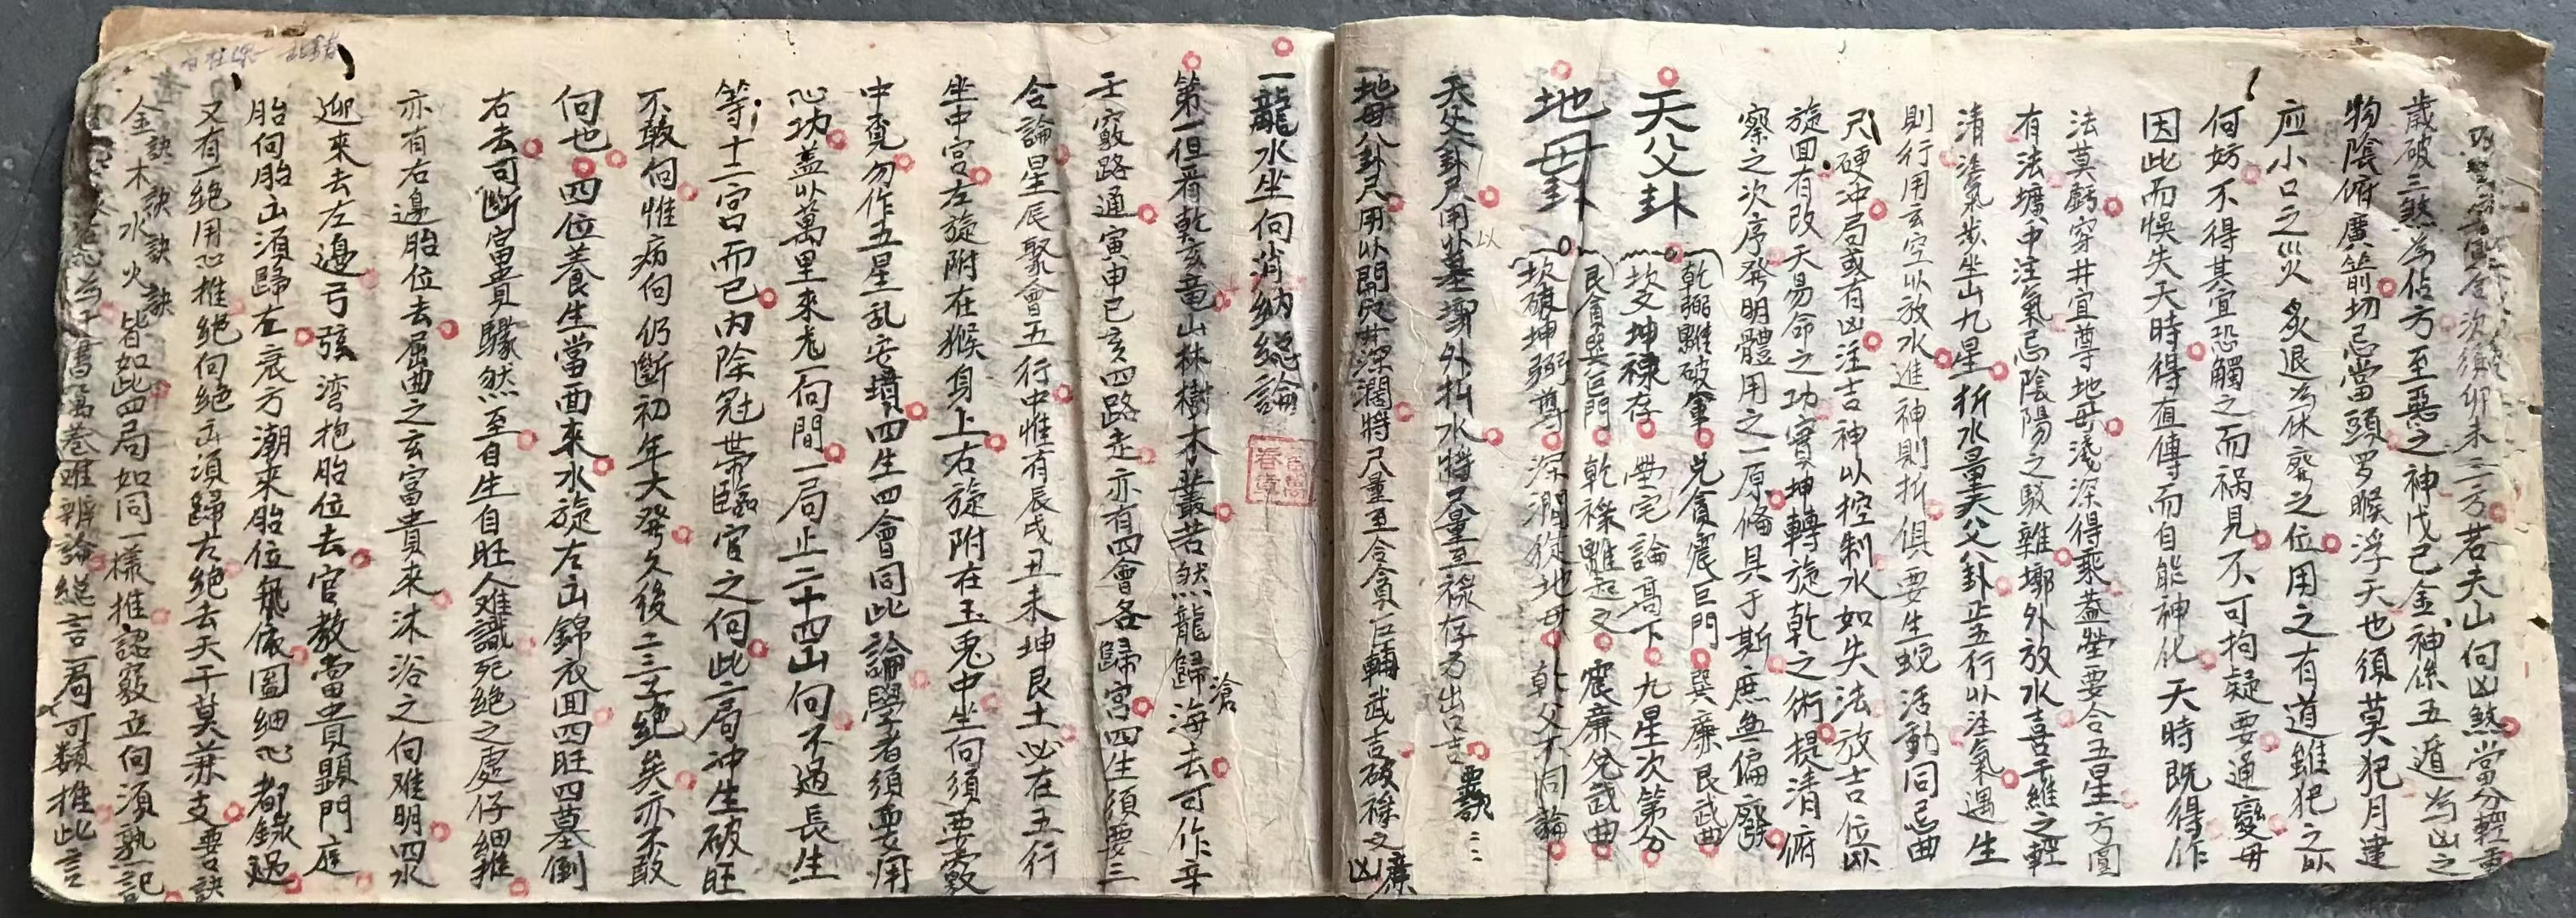 宜合次須卯未三方若夫山向凶煞當分輕重
歲破三煞為佔方至惡之神戊己金神係五遁為山之
物陰府廣箭切忌當頭罗睺浮天也須莫犯月建
应小口之災炙退為休廢之位用之有道雖犯之以
何妨不得其宜恐觸之而禍見不可拘疑要通變毋
因此而悞失天時得直傳而自能神化天時既得作
法莫虧穿井宜尊地母淺深得乘蓋塋要合五星方圓
有法壙中注氣忌陰陽之駁雜墎外放水喜干維之輕
清注氣必坐山九星折水量天父卦正五行以注氣遇生
則行用玄空以放水進神則折俱要生蛇活動同忌曲
尺硬冲局或有凶注吉神以控制水如失法放吉位以
旋回有改天易命之功實坤轉旋乾之術提清俯
察之次序發明體用之一原備具于斯庶無偏廢
天父卦
乾弼離破軍 兌貪震巨門 巽廉艮武曲
坎文坤祿存 塋宅論高下 九星次第分
地母卦
艮貪巽巨門 乾祿離起文 震廉兌武曲
坎破坤弼尊 深濶從地母 乾父不同論
天父卦尺用以墓塋外折水將尺量至祿存方出口吉
地母八卦尺用以開取井深濶將尺量至合貪巨輔武吉破祿文廉凶
一龍水坐向消納總論
第一但看乾亥竜山林樹木叢若然龍歸滄海去可作辛
壬竅路通寅申巳亥四路走亦有四會各歸宮四生須要三
合論星辰聚會五行中惟有辰戌丑未坤艮土必在五行
坐中宮左旋附在猴身上右旋附在玉兎中坐向須要竅
中覔勿作五星乱安墳四生四會同此論學者須要用
心功蓋以萬里來尨一向間一局止二十四山向不過長生
等十二宮而已內除冠帶臨官之向此二局冲生破旺
不敢向惟病向仍斷初年大發久後二三子絕矣亦不敢
向也四位養生當面來水旋左出錦衣回四旺四墓倒
右去可断富貴驟然至自生自旺人难識死絕之處仔細推
亦有右邊胎位去屈曲之玄富貴來沐浴之向难明四水
迎來去左邊弓弦湾抱胎位去官教當貴顕門庭
胎向胎出須歸左衰方潮來胎位飛依圖細心都錄過
又有一絕用心推絕向絕出須歸右絕去天干莫兼支要訣
金訣木訣水訣火訣皆如此四局如同一樣推認竅立向須熟記
為千書萬卷难辨論縂言一局可類推此言